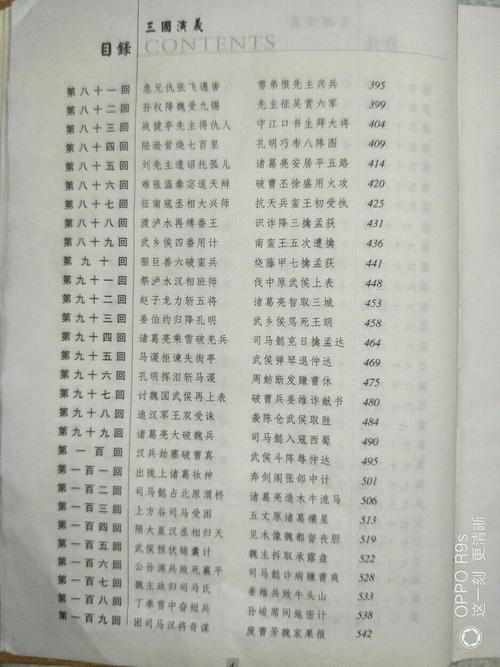 三國演義
目錄 CONTENTS
第八十一回 急兄仇张飞遇害 雪弟恨先主兴兵 395
第八十二回 孙权降魏受九锡 先主征吴赏六军 399
第八十三回 战猇亭先主得仇人 守江口书生拜大将 404
第八十四回 陆逊营烧七百里 孔明巧布八阵图 409
第八十五回 刘先主遗诏托孤儿 诸葛亮安居平五路 414
第八十六回 难张温秦宓逞天辩 破曹丕徐盛用火攻 420
第八十七回 征南寇丞相大兴师 抗天兵蛮王初受执 425
第八十八回 渡泸水再缚番王 识诈降三擒孟获 431
第八十九回 武乡侯四番用计 南蛮王五次遭擒 436
第九十回 驱巨兽六破蛮兵 烧藤甲七擒孟获 441
第九十一回 祭泸水汉相班师 伐中原武侯上表 448
第九十二回 赵子龙力斩五将 诸葛亮智取三城 453
第九十三回 姜伯约归降孔明 武乡侯骂死王朗 458
第九十四回 诸葛亮乘雪破羌兵 司马懿克日擒孟达 464
第九十五回 马谡拒谏失街亭 武侯弹琴退仲达 469
第九十六回 孔明挥泪斩马谡 周鲂断发赚曹休 475
第九十七回 讨魏国武侯再上表 破曹兵姜维诈献书 480
第九十八回 追汉军王双受诛 袭陈仓武侯取胜 484
第九十九回 诸葛亮大破魏兵 司马懿入寇西蜀 490
第一百回 汉兵劫寨破曹真 武侯斗阵辱仲达 495
第一百一回 出陇上诸葛妆神 奔剑阁张郃中计 501
第一百二回 司马懿占北原渭桥 诸葛亮造木牛流马 506
第一百三回 上方谷司马受困 五丈原诸葛禳星 513
第一百四回 陨大星汉丞相归天 见木像魏都督丧胆 519
第一百五回 武侯预伏锦囊计 魏主拆取承露盘 522
第一百六回 公孙渊兵败死襄平 司马懿诈病赚曹爽 528
第一百七回 魏主政归司马氏 姜维兵败牛头山 533
第一百八回 丁奉雪中奋短兵 孙峻席间施密计 538
第一百九回 困司马汉将奇谋 废曹芳魏家果报 542
4
OPPO R9s
这一刻 更清晰